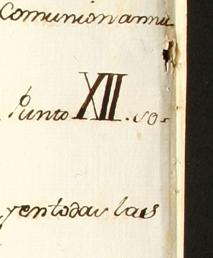 Comunion annu
Punto XII. so-
y en todas las